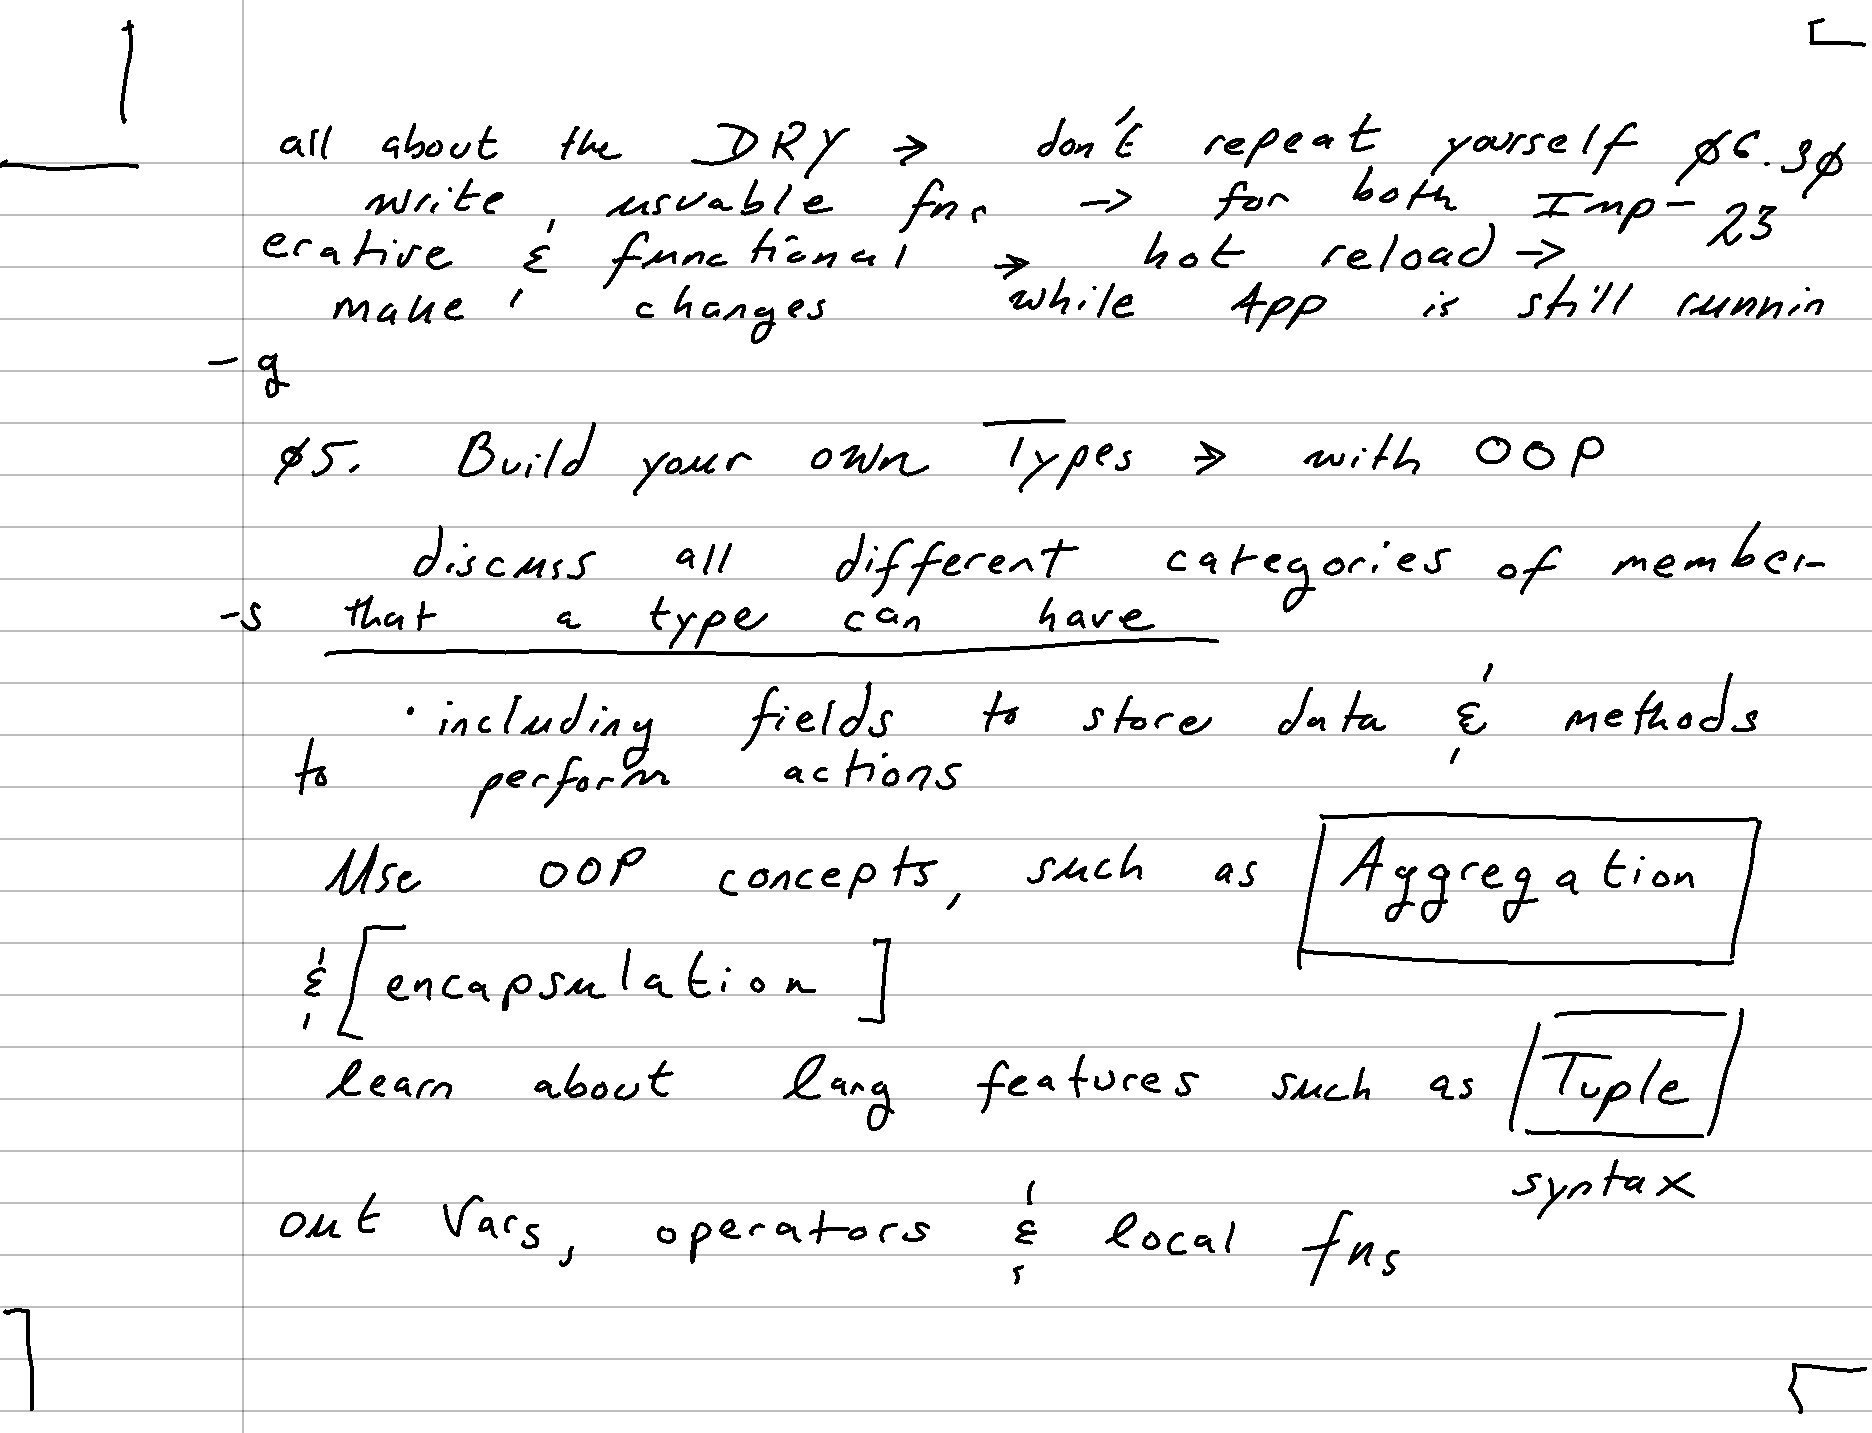 all about the DRY → don't repeat yourself ø6.3ø
write usuable fns → for both Imp- 23
erative & functional → hot reload →
make changes while App is still runnin
-g
ø5. Build your own Types → with OOP
discuss all different categories of member-
-s that a type can have
• including fields to store data & methods
to perform actions
Use OOP concepts, such as Aggregation
& [encapsulation]
learn about lang features such as Tuple
syntax
out Vars, operators & local fns